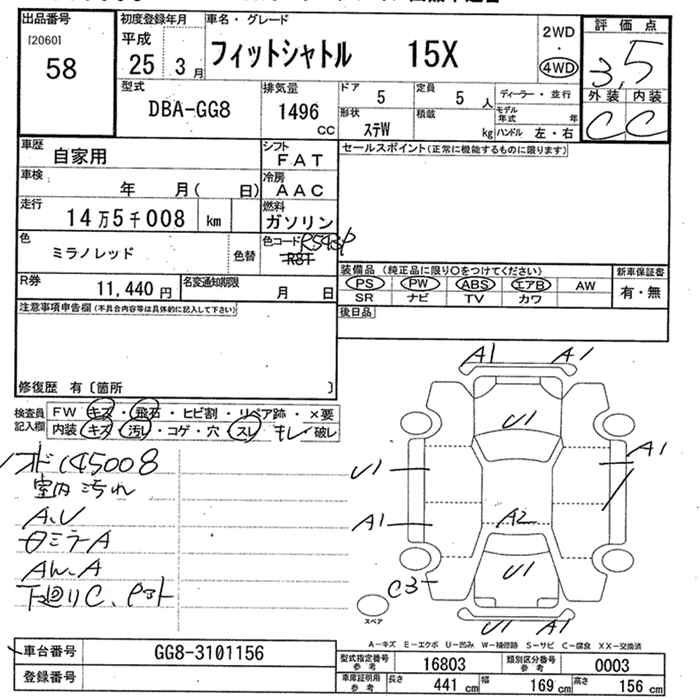 出品番号
[2060]
58
初度登録年月
平成
25 3 月
車名・グレード
フィットシャトル 15X
2WD
・
4WD
評価点
3.5
外装 内装
C C
型式
DBA-GG8
排気量
1496
CC
ドア
5
定員
5 人
ディーラー・並行
形状
ステW
積載
kg
モデル年式 年
ハンドル 左・右
車歴
自家用
シフト
FAT
セールスポイント(正常に機能するものに限ります)
車検
年 月( 日)
冷房
AAC
走行
14万5千008 km
燃料
ガソリン
色
ミラノレッド
色替
色コード
R543P
R81
R券
11,440 円
名変通知期限
月 日
装備品 (純正品に限り○をつけてください)
PS PW ABS エアB AW
SR ナビ TV カワ
新車保証書
有・無
注意事項申告欄(不具合内容等は具体的に記入して下さい)
後日品
修復歴 有〔箇所 〕
検査員
記入欄
FW キズ・飛石・ヒビ割・リペア跡・×要
内装 キズ・汚レ・コゲ・穴・スレ・キレ・破レ
A1 A1
U1
U1
A1
A1
A2
U1
C3
U1 A1
ソオド145008
室内汚れ
A、U
日ミラーA
AW、A
下廻りC、
スペア
A-キズ E-エクボ U-凹み W-補修跡 S-サビ C-腐食 XX-交換済
車台番号
GG8-3101156
登録番号
型式指定番号
参考
16803
類別区分番号
参考
0003
車庫証明用
参考
長さ
441 cm
幅
169 cm
高さ
156 cm